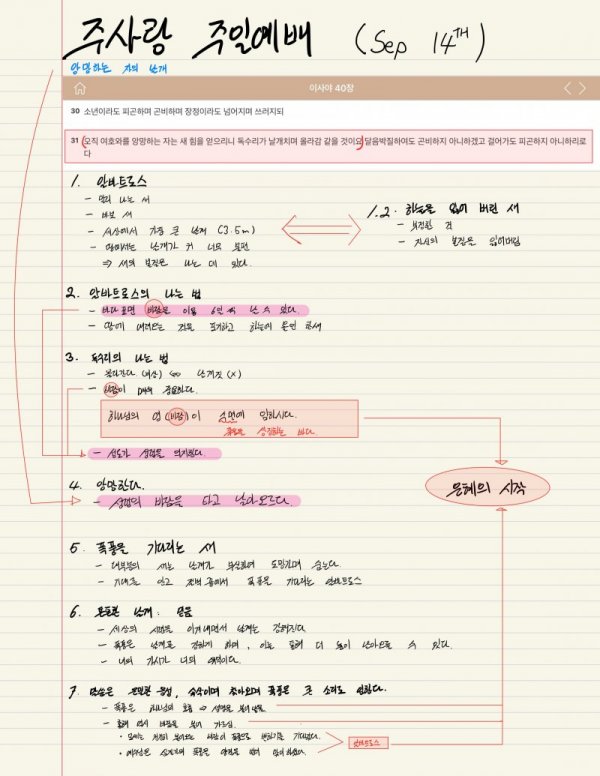 주사랑 주일예배 (Sep 14TH)
앙망하는 자의 날개
이사야 40장
30 소년이라도 피곤하며 곤비하며 장정이라도 넘어지며 쓰러지되
31 오직 여호와를 앙망하는 자는 새 힘을 얻으리니 독수리가 날개치며 올라감 같을 것이요 달음박질하여도 곤비하지 아니하겠고 걸어가도 피곤하지 아니하리로
다
1. 알바트로스
- 멀리 나는 새
- 바보 새
- 세상에서 가장 큰 날개 (3.5m)
- 땅에서는 날개가 커 너무 불편
⇒ 새의 본질은 나는 데 있다.
1.2. 하늘을 잃어 버린 새
- 보편한 것
- 자신의 본질을 잃어버림
2. 알바트로스의 나는 법
- 바다 표면 바람을 이용 6일 씩 날 수 있다.
- 땅에 내려오는 것을 포기하고 하늘에 묻힌 새
3. 독수리의 나는 법
- 올라간다 (비상) ⇔ 날개짓 (X)
- 바람이 매우 중요하다.
하나님의 영 (바람)이 수면에 임하시다.
폭풍을 상징하는 바다.
- 성도가 성령을 의지한다.
4. 앙망한다.
- 성령의 바람을 타고 날아오르다.
은혜의 시작
5. 폭풍을 기다리는 새
- 대부분의 새는 날개가 부실하여 도망가며 숨는다.
- 기대를 안고 절벽 끝에서 폭풍을 기다리는 알바트로스
6. 튼튼한 날개: 믿음
- 세상의 시험을 이겨내면서 날개는 강해진다.
- 폭풍은 날개를 강하게 하며, 이는 통해 더 높이 날아오를 수 있다.
- 나의 가시가 나의 영적이다.
7. 말씀은 세밀한 음성, 속삭이며 찾아오며 폭풍은 큰 소리로 임한다.
- 폭풍은 하나님의 호흡 ⇒ 생명을 불어 넣음
알바트로스